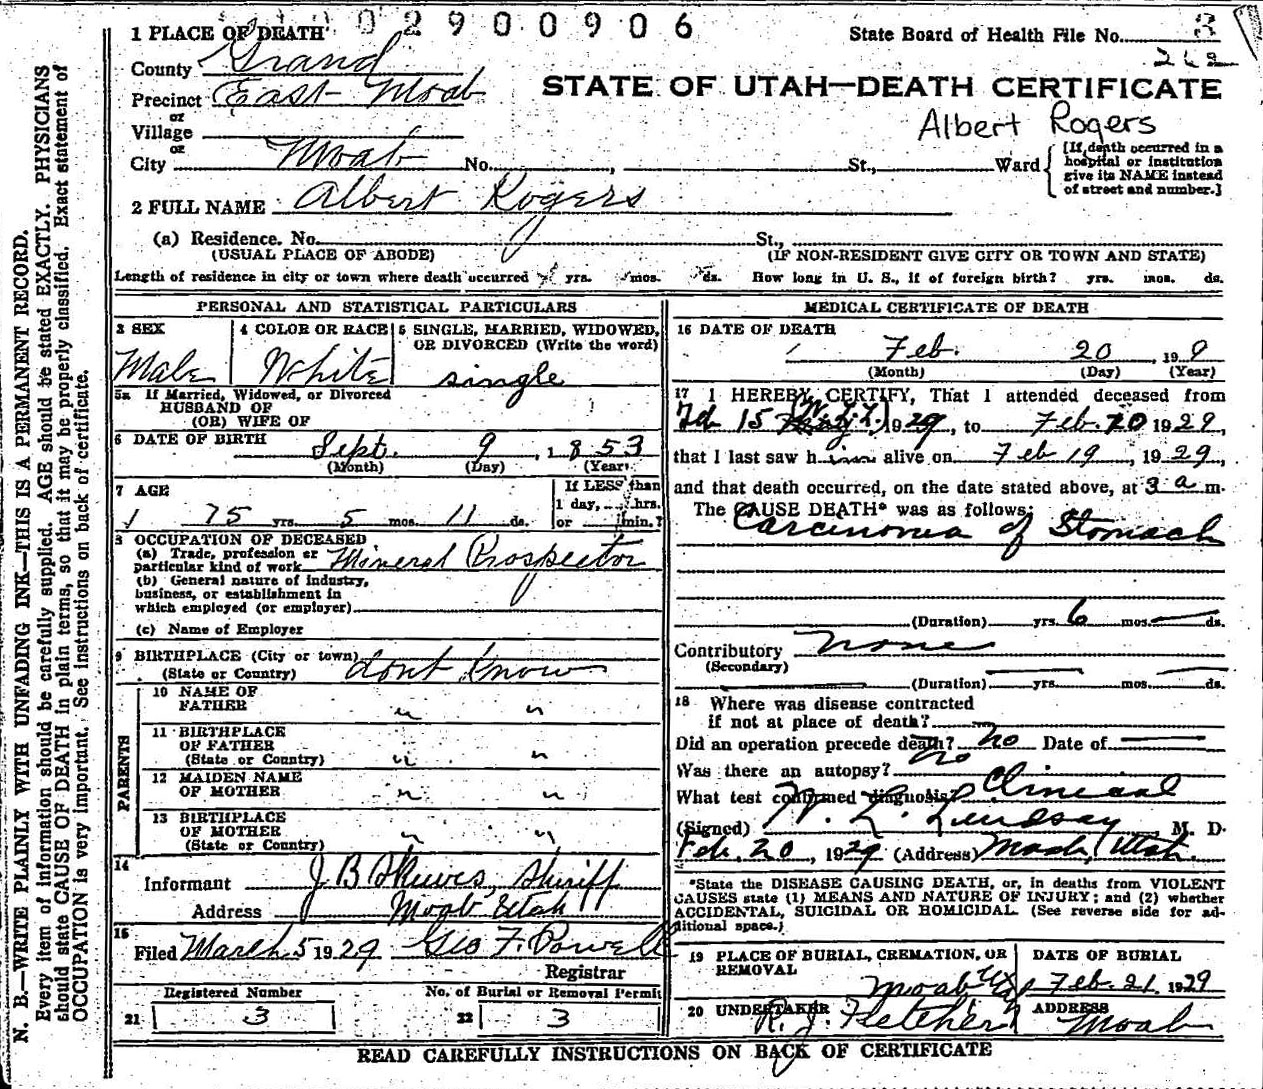 02900906
1 PLACE OF DEATH
State Board of Health File No. 3
262
County Grand
STATE OF UTAH—DEATH CERTIFICATE
Precinct East Moab
or
Village
Albert Rogers
or
City Moab No. , St., Ward
[If death occurred in a hospital or institution give its NAME instead of street and number.]
2 FULL NAME Albert Rogers
(a) Residence. No. St.,
(USUAL PLACE OF ABODE) (IF NON-RESIDENT GIVE CITY OR TOWN AND STATE)
Length of residence in city or town where death occurred yrs. mos. ds. How long in U. S., if of foreign birth? yrs. mos. ds.
PERSONAL AND STATISTICAL PARTICULARS
3 SEX
Male
4 COLOR OR RACE
White
5 SINGLE, MARRIED, WIDOWED,
OR DIVORCED (Write the word)
single
5a If Married, Widowed, or Divorced
HUSBAND OF
(OR) WIFE OF
6 DATE OF BIRTH Sept. 9, 1853
(Month) (Day) (Year)
7 AGE
75 yrs. 5 mos. 11 ds.
If LESS than
1 day, hrs.
or min.?
8 OCCUPATION OF DECEASED
(a) Trade, profession or
particular kind of work Mineral Prospector
(b) General nature of industry,
business, or establishment in
which employed (or employer)
(c) Name of Employer
9 BIRTHPLACE (City or town)
(State or Country) dont know
PARENTS
10 NAME OF
FATHER " "
11 BIRTHPLACE
OF FATHER
(State or Country) " "
12 MAIDEN NAME
OF MOTHER " "
13 BIRTHPLACE
OF MOTHER
(State or Country) " "
14
Informant J B Skewes, Sheriff
Address Moab Utah
15
Filed March 5 1929 Geo F. Powell
Registrar
Registered Number
21 3
No. of Burial or Removal Permit
22 3
MEDICAL CERTIFICATE OF DEATH
16 DATE OF DEATH
Feb. 20, 199
(Month) (Day) (Year)
17 I HEREBY CERTIFY, That I attended deceased from
Feb 15 (W.L.L.) 1929, to Feb. 20 1929,
that I last saw him alive on Feb 19, 1929,
and that death occurred, on the date stated above, at 3 a m.
The CAUSE DEATH* was as follows:
Carcinoma of Stomach
(Duration) yrs. 6 mos. — ds.
Contributory none
(Secondary)
(Duration) — yrs. — mos. — ds.
18 Where was disease contracted
if not at place of death? —
Did an operation precede death? no Date of —
Was there an autopsy? no
What test confirmed diagnosis? Clinical
(Signed) W. L. Lindsay M. D.
Feb. 20, 1929 (Address) Moab, Utah.
*State the DISEASE CAUSING DEATH, or, in deaths from VIOLENT
CAUSES state (1) MEANS AND NATURE OF INJURY; and (2) whether
ACCIDENTAL, SUICIDAL OR HOMICIDAL. (See reverse side for additional space.)
19 PLACE OF BURIAL, CREMATION, OR
REMOVAL
Moab Utah
DATE OF BURIAL
Feb. 21. 1929
20 UNDERTAKER
R. J. Fletcher
ADDRESS
Moab
READ CAREFULLY INSTRUCTIONS ON BACK OF CERTIFICATE
N. B.—WRITE PLAINLY WITH UNFADING INK—THIS IS A PERMANENT RECORD.
Every item of information should be carefully supplied. AGE should be stated EXACTLY. PHYSICIANS
should state CAUSE OF DEATH in plain terms, so that it may be properly classified. Exact statement of
OCCUPATION is very important. See instructions on back of certificate.